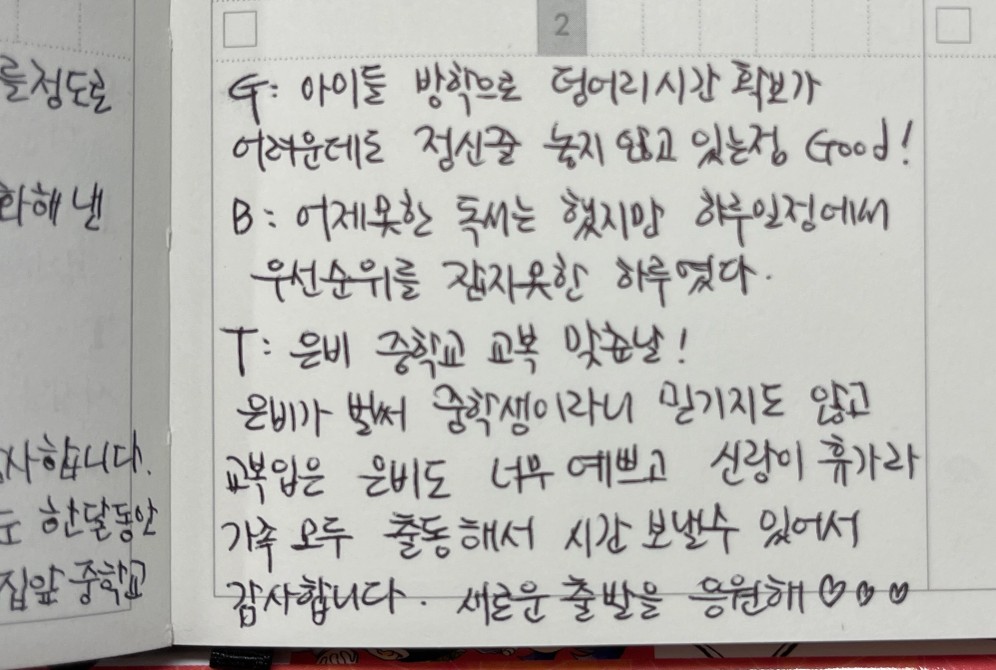 2
를정도로
화해 낸
사합니다.
한달동안
집앞 중학교
G: 아이들 방학으로 덩어리시간 확보가
어려운데도 정신줄 놓지 않고 있는점 Good!
B: 어제못한 독서는 했지만 하루일정에서
우선순위를 잡지못한 하루였다.
T: 은비 중학교 교복 맞춘날!
은비가 벌써 중학생이라니 믿기지도 않고
교복입은 은비도 너무 예쁘고 신랑이 휴가라
가족 모두 출동해서 시간 보낼수 있어서
감사합니다. 새로운 출발을 응원해 ♡♡♡